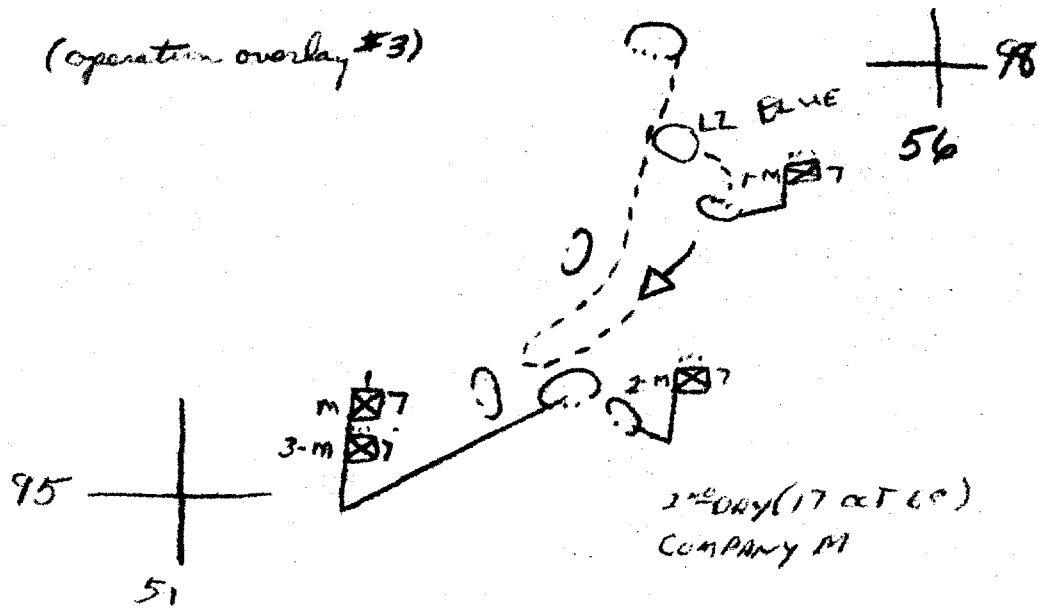 (operation overlay #3)
98
56
LZ BLUE
1-M 7
2-M 7
M 7
3-M 7
95
51
2ND DAY (17 OCT 68)
COMPANY M